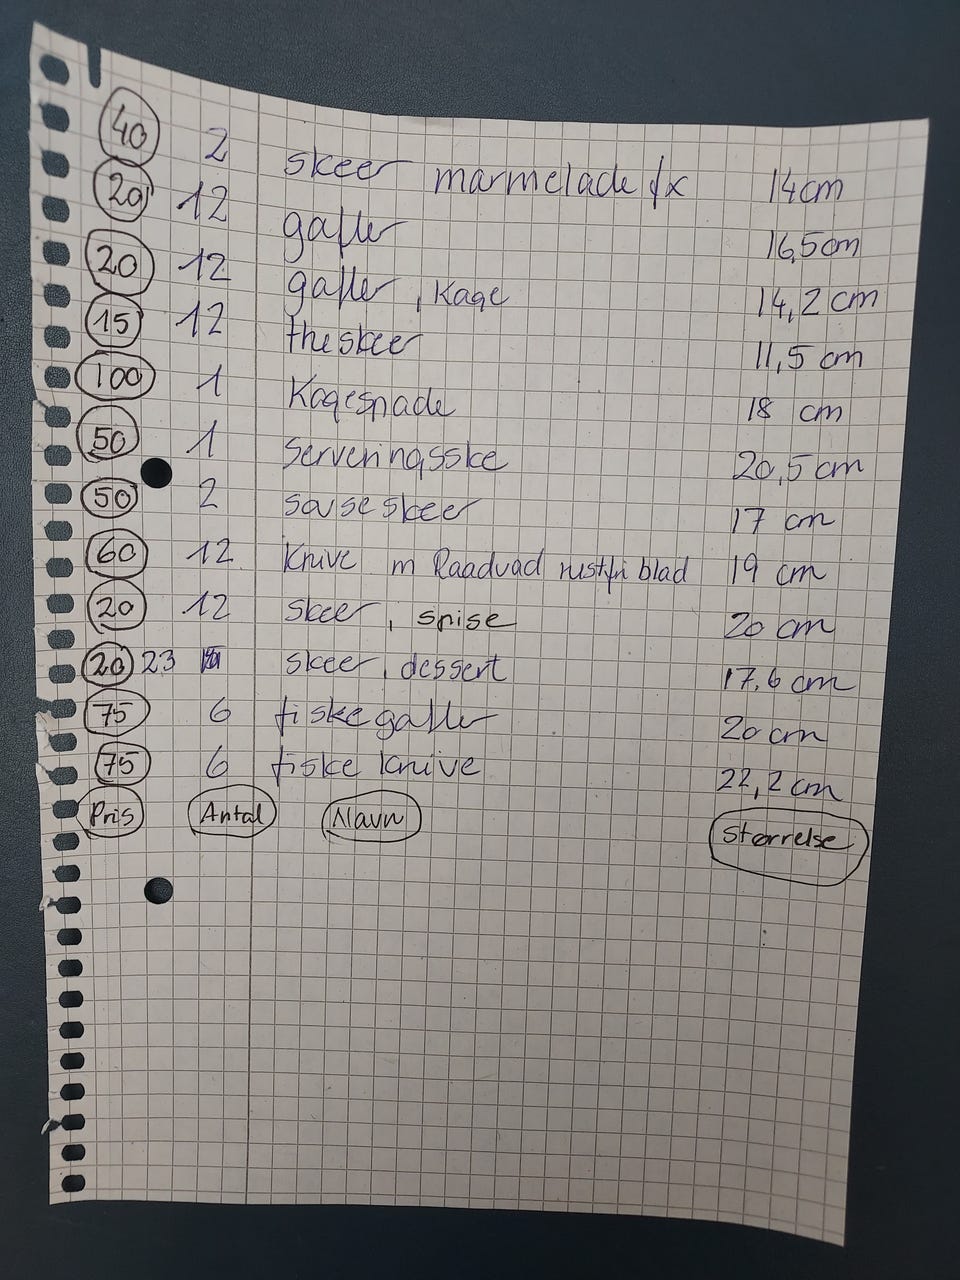 40 2 skeer marmelade fx 14 cm
20 12 gafler 16,5 cm
20 12 gafler, Kage 14,2 cm
15 12 theskeer 11,5 cm
100 1 Kagespade 18 cm
50 1 Serveringsske 20,5 cm
50 2 sauseskeer 17 cm
60 12 Knive m Raadvad rustfri blad 19 cm
20 12 skeer, spise 20 cm
20 23 skeer, dessert 17,6 cm
75 6 fiskegafler 20 cm
75 6 fiske knive 22,2 cm
Pris Antal Navn Størrelse